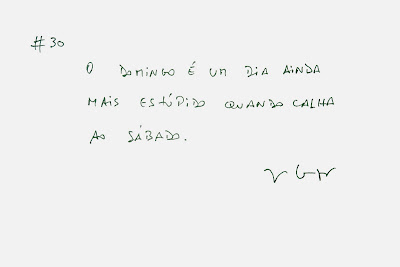 #30
O DOMINGO É UM DIA AINDA
MAIS ESTÚPIDO QUANDO CALHA
AO SÁBADO.